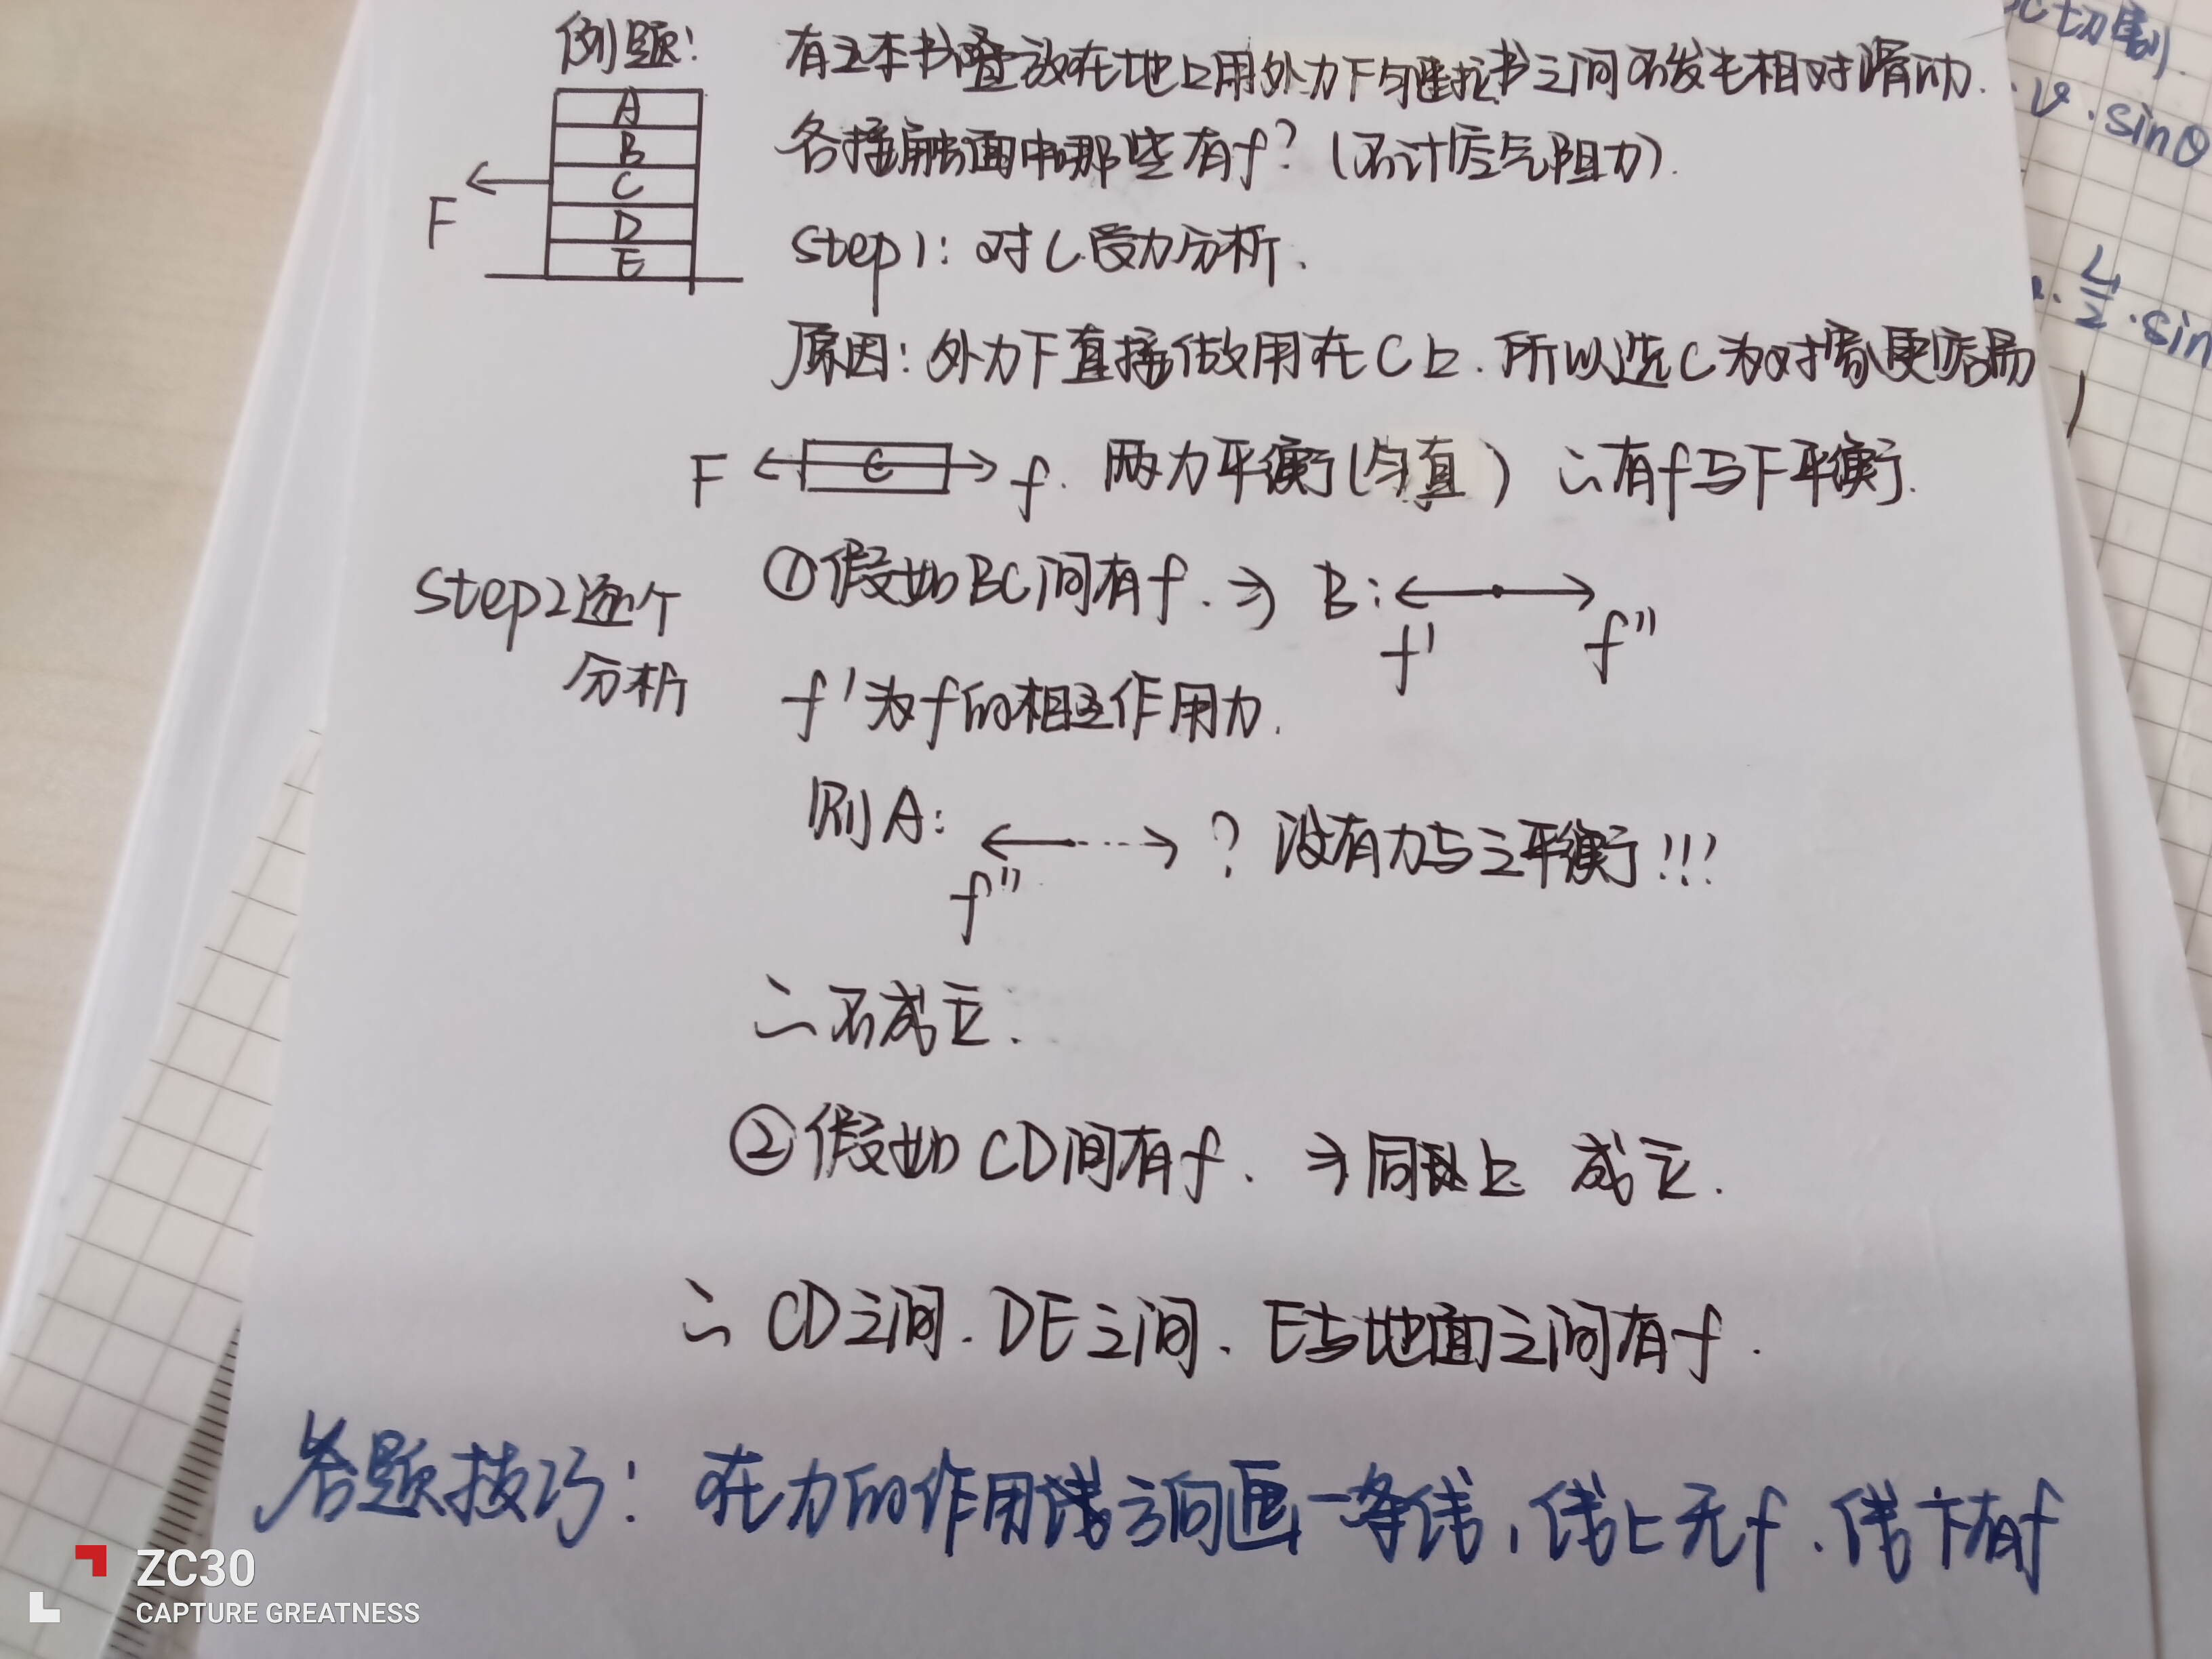 例题：
有五本书叠放在地上用外力F匀速拉书之间不发生相对滑动.
各接触面中哪些有f？（不计空气阻力）.
A
B
C
D
E
F
Step1：对C受力分析.
原因：外力F直接做用在C上.所以选C为对象更容易
F C f. 两力平衡(匀直) ∴有f与F平衡.
Step2逐个
分析
①假如BC间有f. ⇒ B:
f' f''
f'为f的相互作用力.
则A: ? 没有力与之平衡!!!
f'''
∴不成立.
②假如CD间有f. ⇒同上 成立.
∴ CD之间.DE之间、E与地面之间有f.
答题技巧：在力的作用线方向画一条线，线上无f.线下有f
切割.
·v·sinθ
L/2·sin
ZC30
CAPTURE GREATNESS